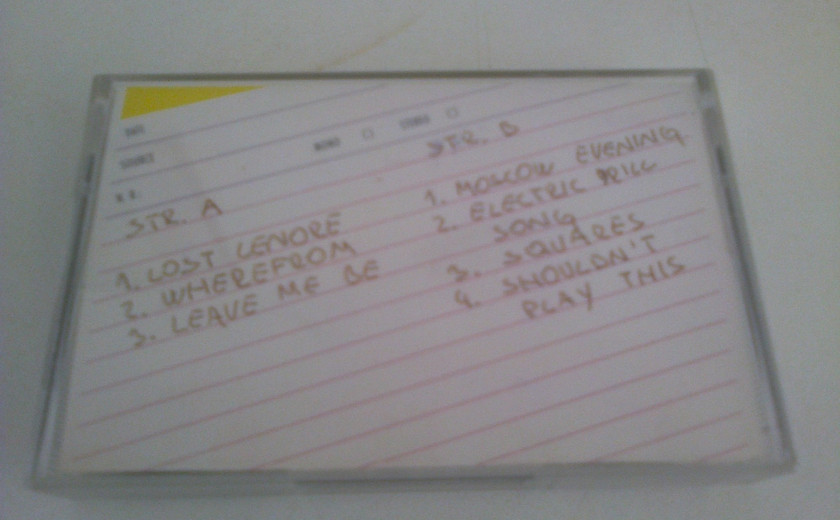 DATE
SOURCE
N.R.
MONO
STEREO
STR. A
1. LOST LENORE
2. WHEREFROM
3. LEAVE ME BE
STR. B
1. MOSCOW EVENING
2. ELECTRIC DRILL
SONG
3. SQUARES
4. SHOULDN'T
PLAY THIS